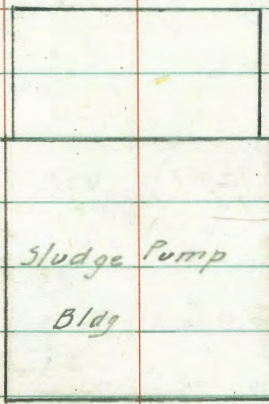 Sludge Pump
Bldg